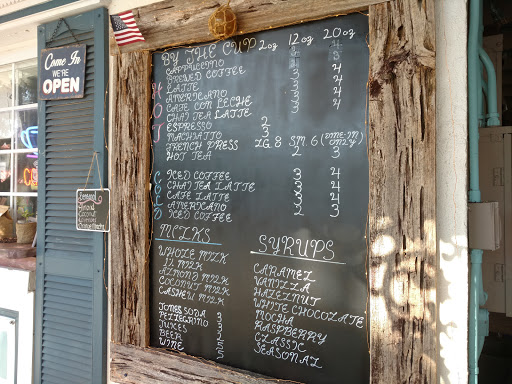 Come In
WE'RE
OPEN
BY THE CUP 2oz 12oz 20oz
HOT
CAPPUCCINO
BREWED COFFEE
LATTE
AMERICANO
CAFE CON LECHE
CHAI TEA LATTE
ESPRESSO 2
MACHIATTO 3
FRENCH PRESS LG. 8 SM. 6 (DINE-IN ONLY)
HOT TEA 2 3
COLD
ICED COFFEE 3 4
CHAI TEA LATTE 3 4
CAFE LATTE 3 4
AMERICANO 3 4
ICED COFFEE 2 3
MILKS
WHOLE MILK
1% MILK
ALMOND MILK
COCONUT MILK
CASHEW MILK
JONES SODA 3
PELLEGRINO 3
JUICES
BEER
WINE 5
SYRUPS
CARAMEL
VANILLA
HAZELNUT
WHITE CHOCOLATE
MOCHA
RASPBERRY
CLASSIC
SEASONAL